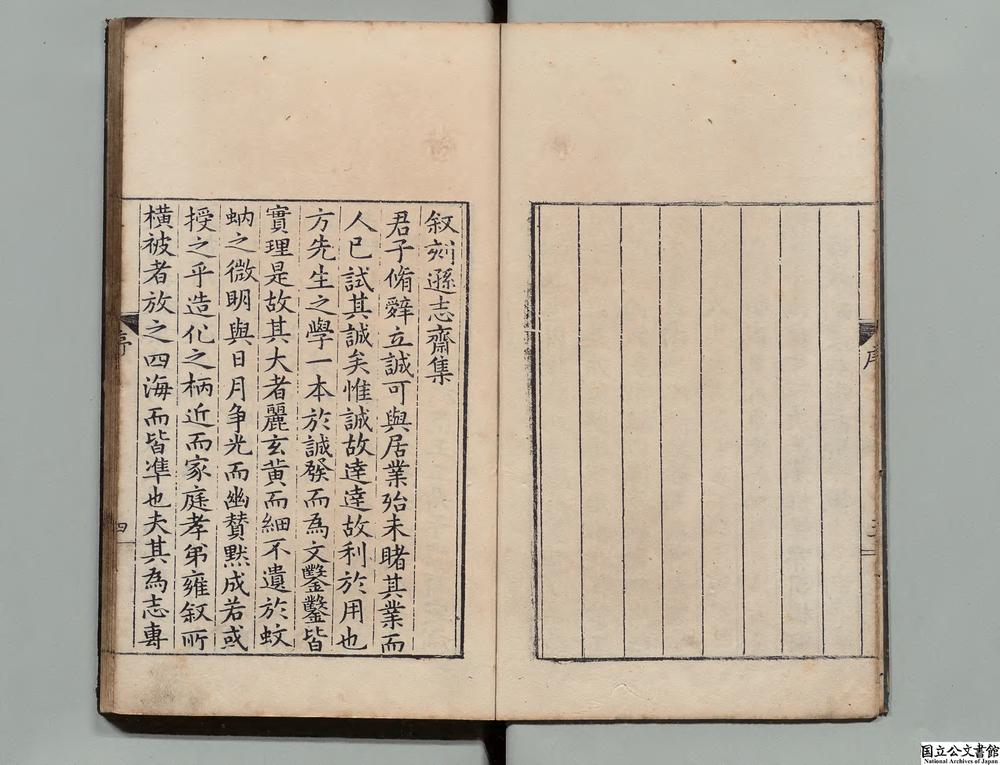 序
三
叙刻遜志齋集
君子脩辭立誠可與居業殆未睹其業而
人已試其誠矣惟誠故達達故利於用也
方先生之學一本於誠發而為文鑿鑿皆
實理是故其大者麗玄黃而細不遺於蚊
蚋之微明與日月争光而幽賛黙成若或
授之乎造化之柄近而家庭孝弟雍叙所
橫被者放之四海而皆準也夫其為志專
序
四
国立公文書館
National Archives of Japan